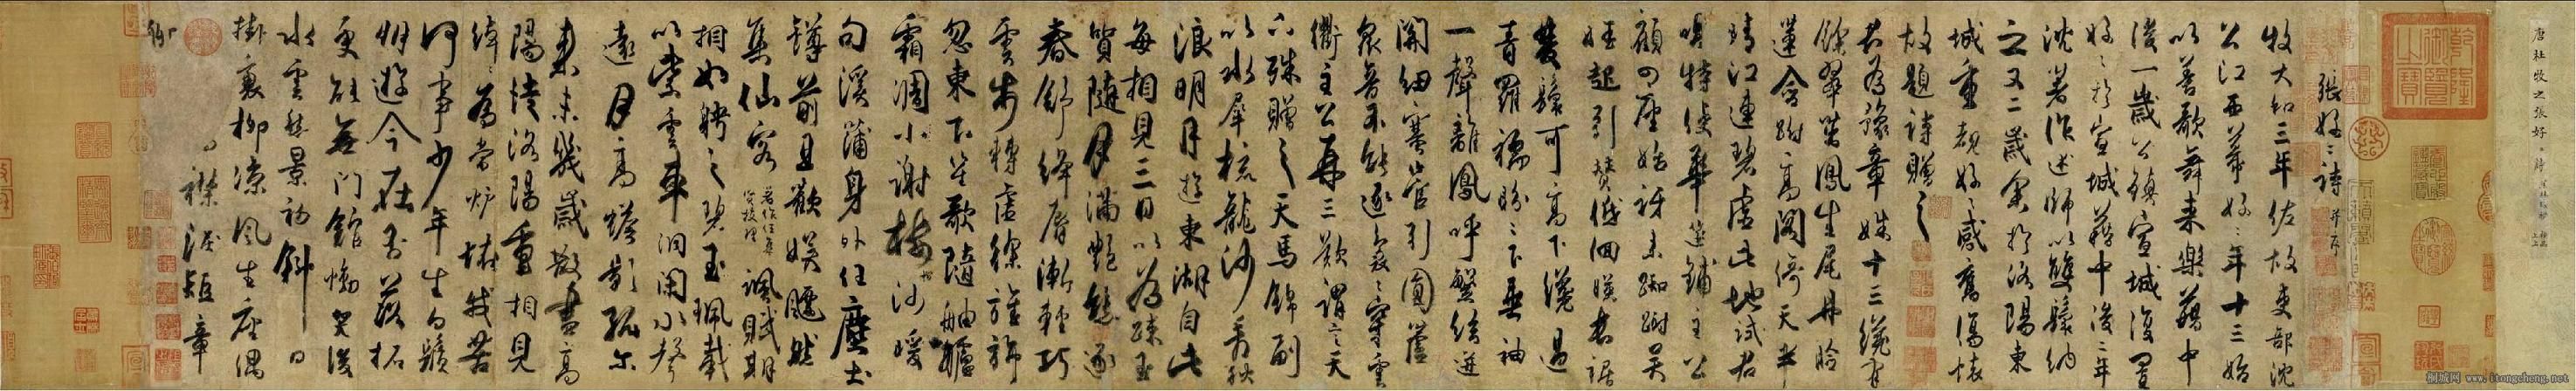 乾隆御覽之寶
張好〻詩并序
牧大和三年佐故吏部沈
公江西幕好〻年十三始
以善歌舞来樂籍中
後一歲公鎮宣城復置
好〻於宣城籍中後二年
沈著作述師以雙鬟納
之又二歲余於洛陽東
城重覩好〻感舊傷懷
故題詩贈之
君為豫章姝十三纔有
餘翠茁鳳生尾丹臉
蓮含跗高閣倚天半
晴江連碧虛此地試君
唱特使華筵鋪主公
顧四座始訝来踟蹰吳
娃起引贊低佪暎長裾
雙鬟可高下纔過
青羅襦盼〻下垂袖
一聲離鳳呼繁絃迸
關紐塞管引圓蘆
衆音不能逐裊〻穿雲
衢主公再三歎謂言天
下殊贈之天馬錦副
以水犀梳龍沙看秋
浪明月遊東湖自此
每相見三日以為踈玉
質隨月滿艷態逐
春舒絳脣漸輕巧
雲步轉虛徐旌旆
忽東下笙歌隨舳艫
霜凋小謝樹沙暖
句溪蒲身外任塵土
罇前且歡娛飄然
集仙客著作任集賢校理諷賦期
相如聘之碧玉珮載
以紫雲車洞閑水聲
遠月高蟾影孤尒
来未幾歲散盡高
陽徒洛陽重相見
綽〻為當爐怪我苦
何事少年生白鬚
朋遊今在否落拓
更能無門館慟哭後
水雲愁景初斜日
掛衰柳涼風生座偶
襟淚短章
聊
桐城网 www.itongcheng.net